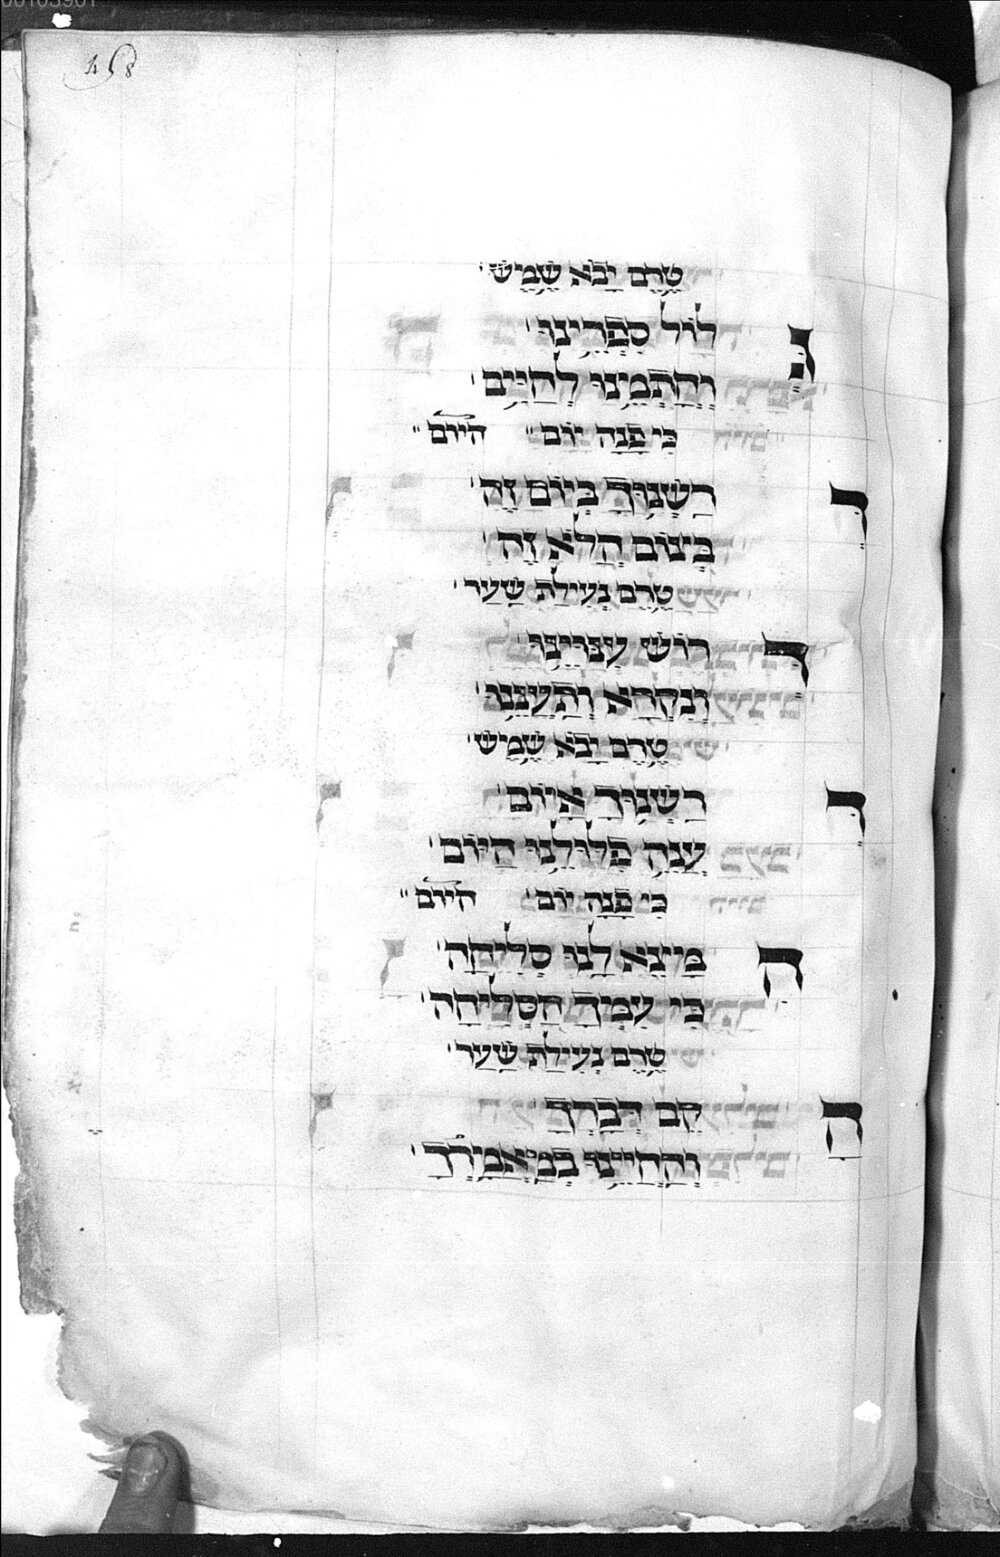 00103901
458
טרם יבא שמש
גלול ספרינו
וחתמינו לחיים
כי פנה יום היום
דרשנוך ביום זה
בצום הלא זה
טרם נעילת שער
דרוש ענויינו
ונקרא ותעננו
טרם יבא שמש
דרשנוך איום
ענה פלולנו היום
כי פנה יום היום
המצא לנו סליחה
כי עמך הסליחה
טרם נעילת שער
הקם דברך
והחיינו במאמרך